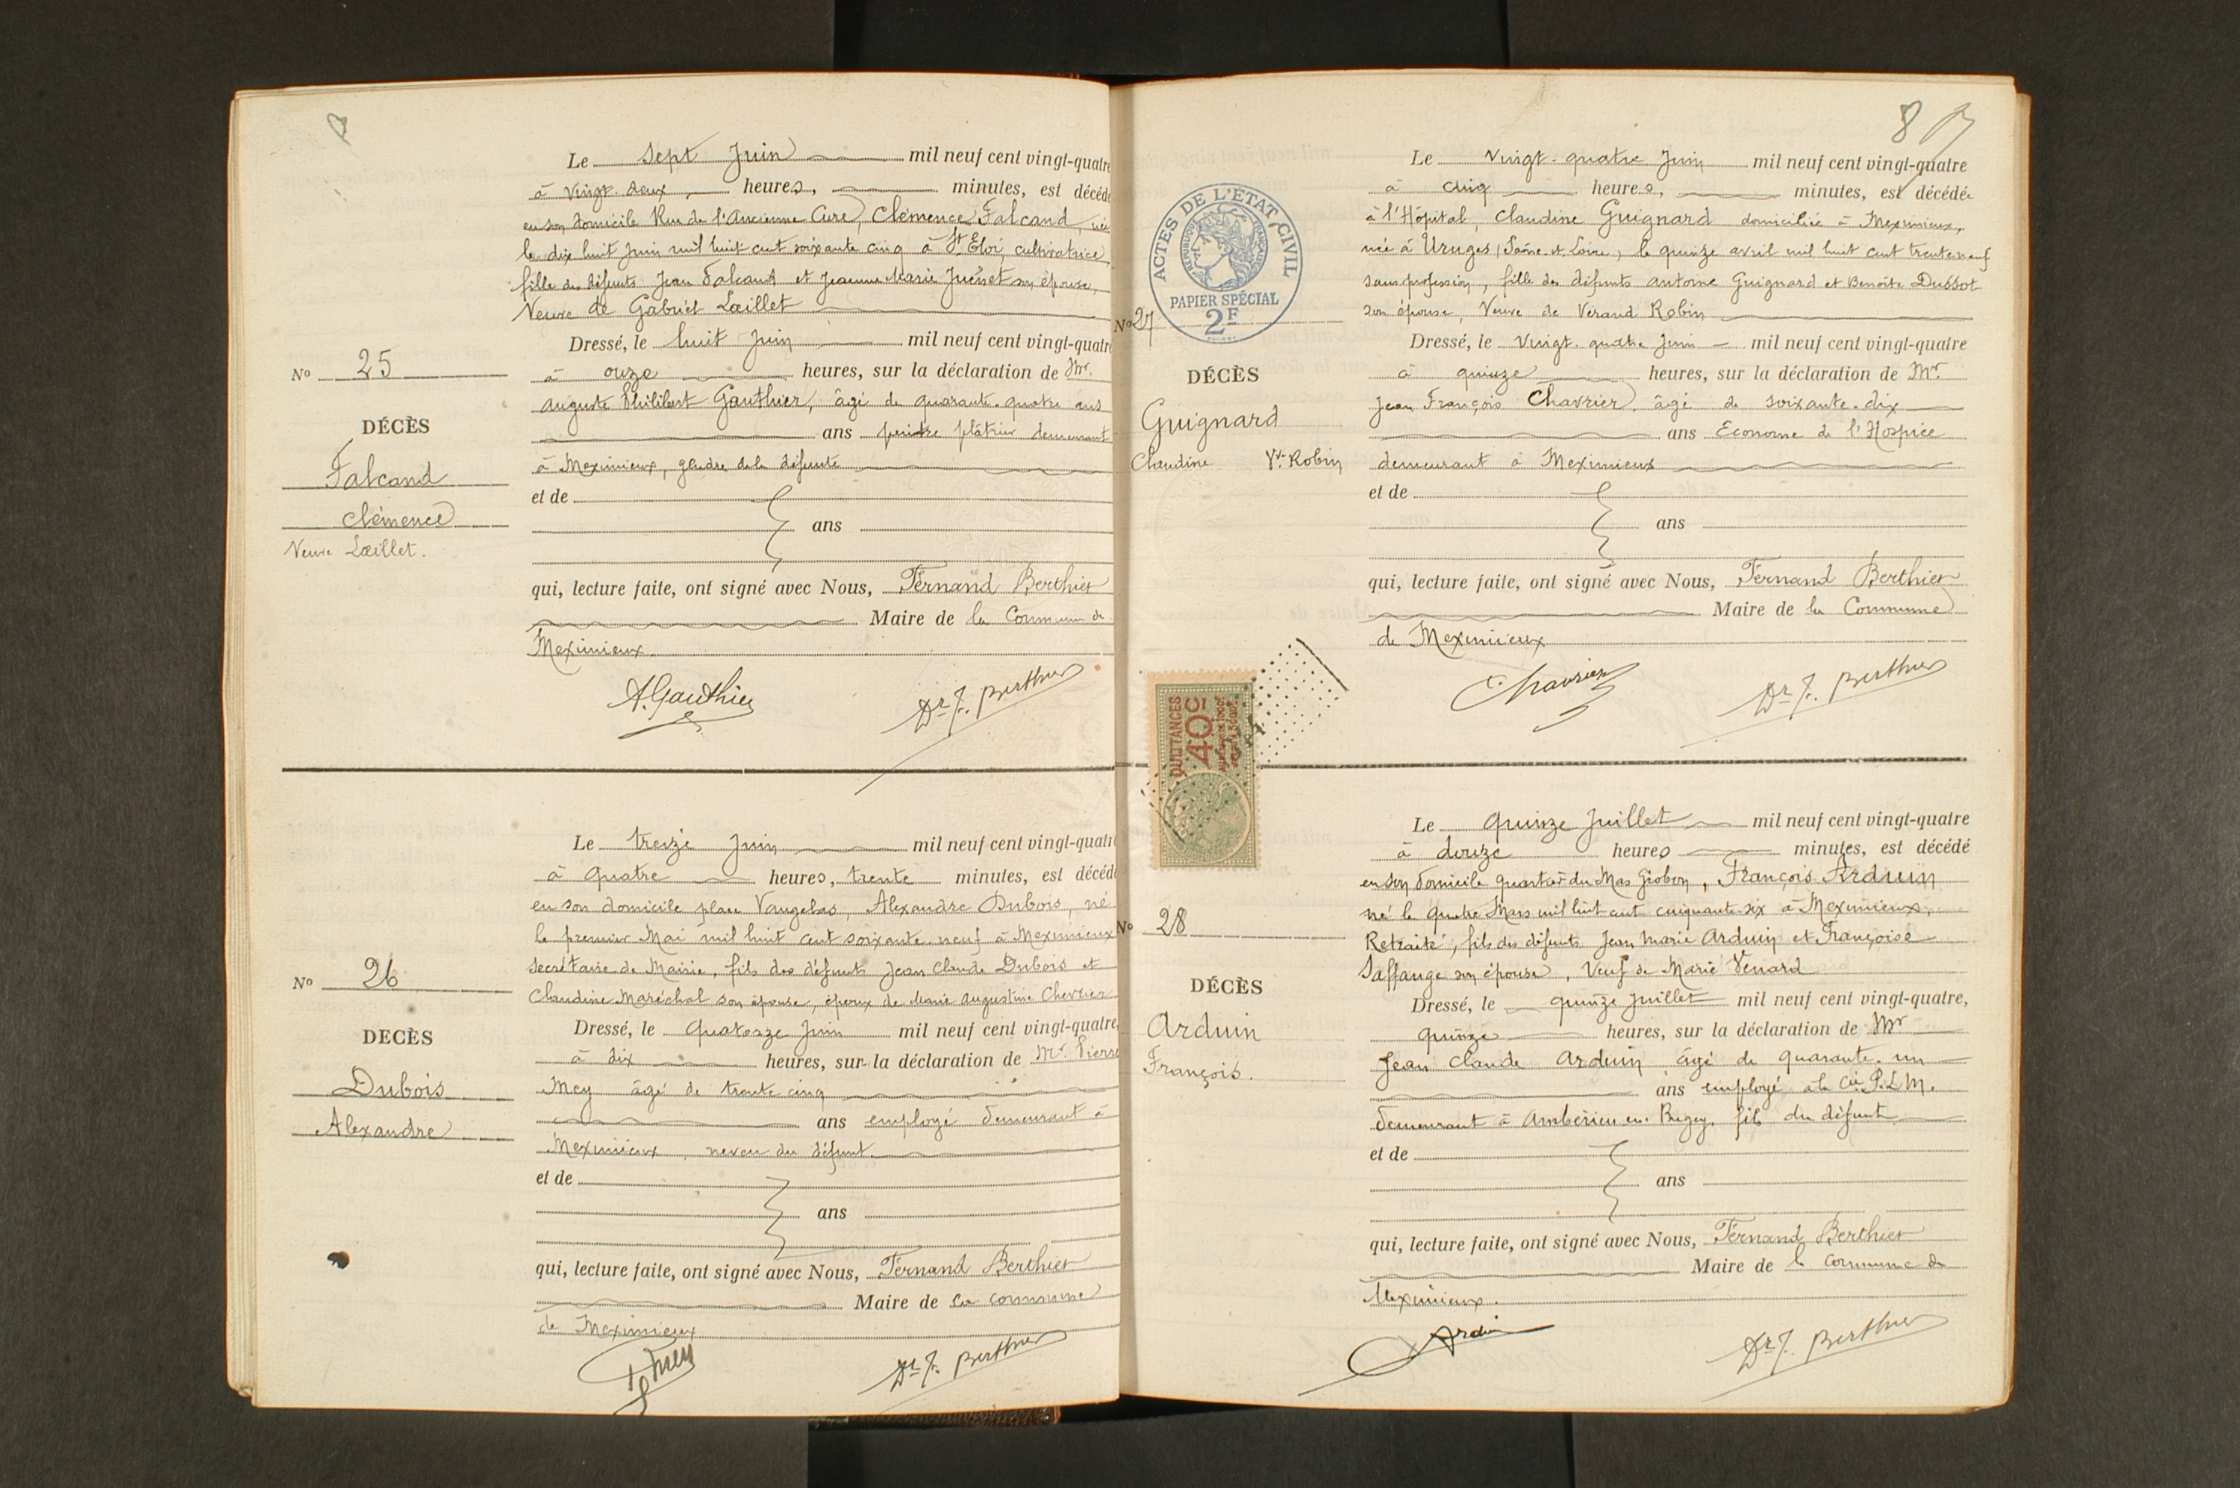 Le sept Juin mil neuf cent vingt-quatre
à vingt-deux heures, minutes, est décédé
en son domicile Rue de l'Ancienne Cure, Clémence Falcand, née
le dix huit Juin mil huit cent soixante cinq à St Eloi, cultivatrice,
fille des défunts Jean Falcand et Jeanne Marie Juénet son épouse,
Veuve de Gabriel Lœillet
Dressé, le huit Juin mil neuf cent vingt-quatre
à onze heures, sur la déclaration de Mr.
Auguste Philibert Gauthier, âgé de quarante-quatre ans
ans peintre plâtrier demeurant
à Meximieux, gendre de la défunte
et de
ans
qui, lecture faite, ont signé avec Nous, Fernand Berthier
Maire de la Commune de
Meximieux.
A. Gauthier Dr F. Berthier
No 25
DÉCÈS
Falcand
Clémence
Veuve Lœillet.
Le treize Juin mil neuf cent vingt-quatre
à quatre heures, trente minutes, est décédé
en son domicile place Vaugelas, Alexandre Dubois, né
le premier Mai mil huit cent soixante neuf à Meximieux
Secrétaire de Mairie, fils des défunts Jean Claude Dubois et
Claudine Maréchal son épouse, époux de Marie Augustine Chevrier
Dressé, le quatorze Juin mil neuf cent vingt-quatre,
à dix heures, sur la déclaration de Mr. Pierre
Mey âgé de trente cinq
ans employé demeurant à
Meximieux, neveu du défunt.
et de
ans
qui, lecture faite, ont signé avec Nous, Fernand Berthier
Maire de la commune
de Meximieux
P Mey Dr F. Berthier
No 26
DECÈS
Dubois
Alexandre
8
ACTES DE L'ÉTAT CIVIL
RÉPUBLIQUE FRANÇAISE
PAPIER SPÉCIAL
2F
Le vingt-quatre Juin mil neuf cent vingt-quatre
à cinq heures, minutes, est décédée
à l'Hôpital, Claudine Guignard domiciliée à Meximieux,
née à Uruges (Saône-et-Loire) le quinze avril mil huit cent trente neuf
sans profession, fille des défunts Antoine Guignard et Benoîte Dussot
son épouse, Veuve de Vérand Robin
Dressé, le vingt-quatre Juin mil neuf cent vingt-quatre
à quinze heures, sur la déclaration de Mr.
Jean François Chavrier âgé de soixante-dix
ans Econome de l'Hospice
demeurant à Meximieux
et de
ans
qui, lecture faite, ont signé avec Nous, Fernand Berthier
Maire de la Commune
de Meximieux
Chavrier Dr F. Berthier
No 27
DÉCÈS
Guignard
Claudine Vve Robin
QUITTANCES
40c
Le quinze Juillet mil neuf cent vingt-quatre
à douze heures minutes, est décédé
en son domicile quartier du Mas Giobon, François Arduin
né le quatre Mars mil huit cent cinquante-six à Meximieux,
Retraité, fils des défunts Jean Marie Arduin et Françoise
Saffange son épouse, Veuf de Marie Venard
Dressé, le quinze Juillet mil neuf cent vingt-quatre,
quinze heures, sur la déclaration de Mr
Jean Claude Arduin âgé de quarante-un
ans employé à la Cie P.L.M.
demeurant à Ambérieu en Bugey, fils du défunt
et de
ans
qui, lecture faite, ont signé avec Nous, Fernand Berthier
Maire de la commune de
Meximieux.
Arduin Dr F. Berthier
No 28
DÉCÈS
Arduin
François.